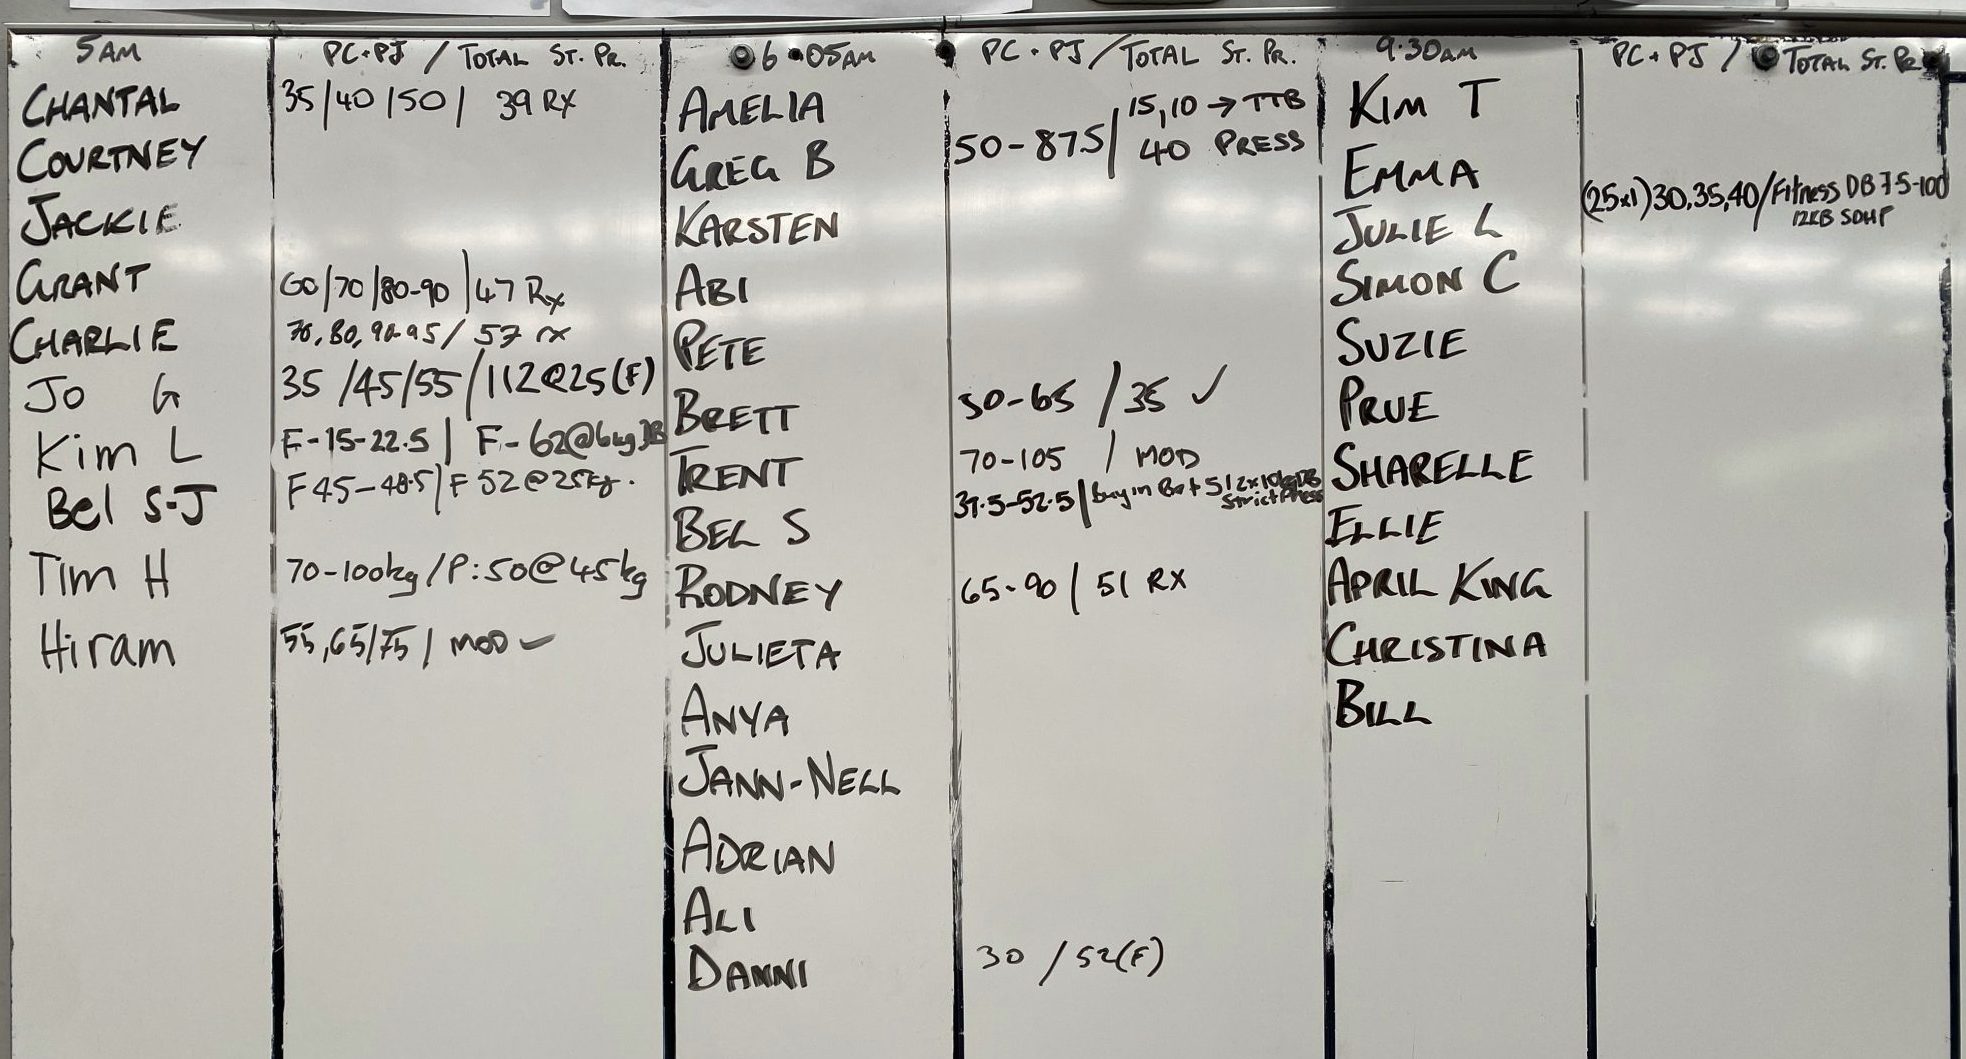 5AM
PC+PJ / TOTAL ST. PR.
CHANTAL 35/40/50/ 39 RX
COURTNEY
JACKIE
GRANT 60/70/80-90/47 Rx
CHARLIE 70, 80, 90-95/ 57 rx
JO G 35/45/55/112@25(F)
Kim L F-15-22.5 | F-62@6kg DB
Bel S-J F45-48.5/F 52@25kg.
Tim H 70-100kg/P:50@45kg
Hiram 55,65/75/ MOD ✓
6:05AM
PC+PJ/TOTAL ST. PR.
AMELIA
15,10 → TTB
GREG B 50-87.5/ 40 PRESS
KARSTEN
ABI
PETE
BRETT 50-65 / 35 ✓
TRENT 70-105 / MOD
BEL S 37.5-52.5/buy in + 51 2x10kgDB
Strict Press
RODNEY 65-90 | 51 RX
JULIETA
ANYA
JANN-NELL
ADRIAN
ALI
DANNI 30 / 52(F)
9.30AM
PC+PJ / TOTAL ST. PR
KIM T
EMMA (25x1)30,35,40/Fitness DB 7.5-100
12KB SDHP
JULIE L
SIMON C
SUZIE
PRUE
SHARELLE
ELLIE
APRIL KING
CHRISTINA
BILL